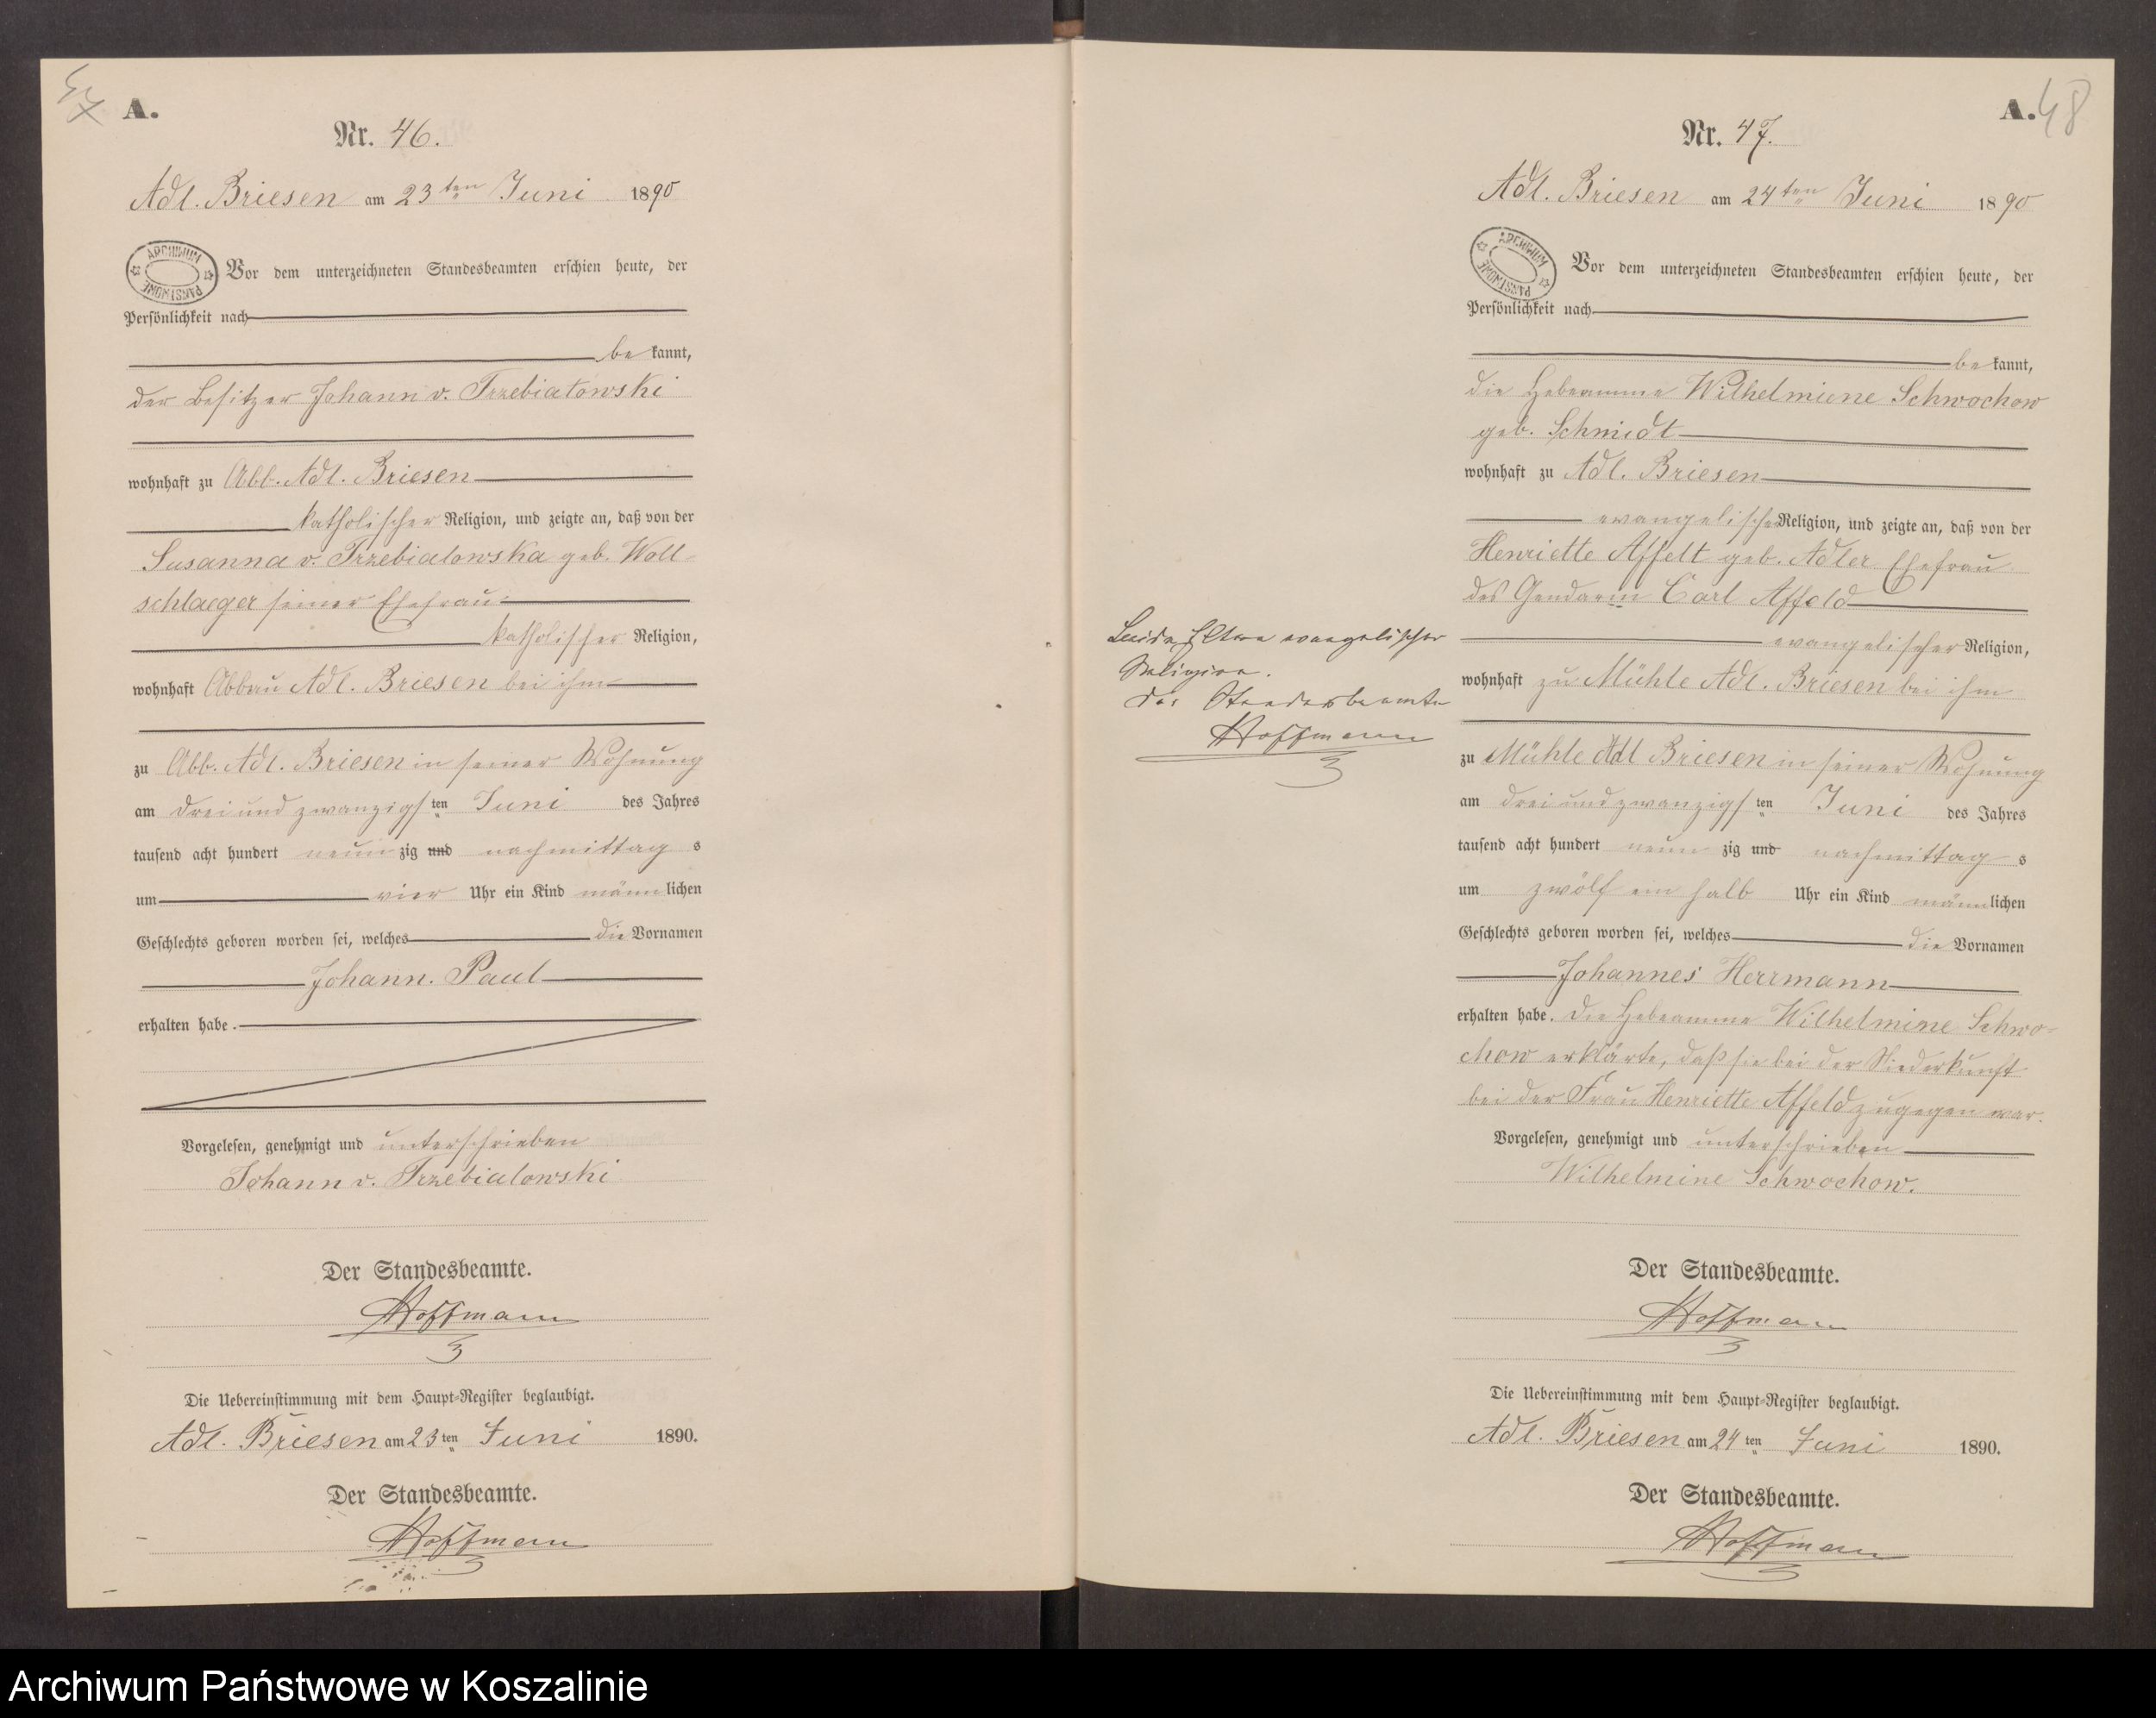 47
A.
Nr. 46.
Adl. Briesen am 23ten Juni 1890
ARCHIWUM PAŃSTWOWE
Vor dem unterzeichneten Standesbeamten erschien heute, der
Persönlichkeit nach
be kannt,
der Besitzer Johann v. Trzebiatowski
wohnhaft zu Abb. Adl. Briesen
katholischer Religion, und zeigte an, daß von der
Susanna v. Trzebiatowska geb. Woll-
schlaeger seiner Ehefrau
katholischer Religion,
wohnhaft Abbau Adl. Briesen bei ihm
zu Abb. Adl. Briesen in seiner Wohnung
am drei und zwanzigsten Juni des Jahres
tausend acht hundert neunzig und nachmittags
um vier Uhr ein Kind männlichen
Geschlechts geboren worden sei, welches die Vornamen
Johann. Paul
erhalten habe.
Vorgelesen, genehmigt und unterschrieben
Johann v. Trzebiatowski
Der Standesbeamte.
Hoffmann
Die Uebereinstimmung mit dem Haupt-Register beglaubigt.
Adl. Briesen am 23ten Juni 1890.
Der Standesbeamte.
Hoffmann
A. 48
Nr. 47.
Adl. Briesen am 24ten Juni 1890
ARCHIWUM PAŃSTWOWE
Vor dem unterzeichneten Standesbeamten erschien heute, der
Persönlichkeit nach
be kannt,
die Hebeamme Wilhelmiene Schwochow
geb. Schmidt
wohnhaft zu Adl. Briesen
evangelischer Religion, und zeigte an, daß von der
Henriette Affelt geb. Adler Ehefrau
des Gendarm Carl Affeld
evangelischer Religion,
wohnhaft zu Mühle Adl. Briesen bei ihm
zu Mühle Adl Briesen in seiner Wohnung
am drei und zwanzigsten Juni des Jahres
tausend acht hundert neunzig und nachmittags
um zwölf ein halb Uhr ein Kind männlichen
Geschlechts geboren worden sei, welches die Vornamen
Johannes Herrmann
erhalten habe. Die Hebeamme Wilhelmine Schwo-
chow erklärte, daß sie bei der Niederkunft
bei der Frau Henriette Affeld zugegen war.
Vorgelesen, genehmigt und unterschrieben
Wilhelmine Schwochow.
Der Standesbeamte.
Hoffmann
Die Uebereinstimmung mit dem Haupt-Register beglaubigt.
Adl. Briesen am 24ten Juni 1890.
Der Standesbeamte.
Hoffmann
Beide Eltern evangelischer
Religion.
Der Standesbeamte
Hoffmann
Archiwum Państwowe w Koszalinie